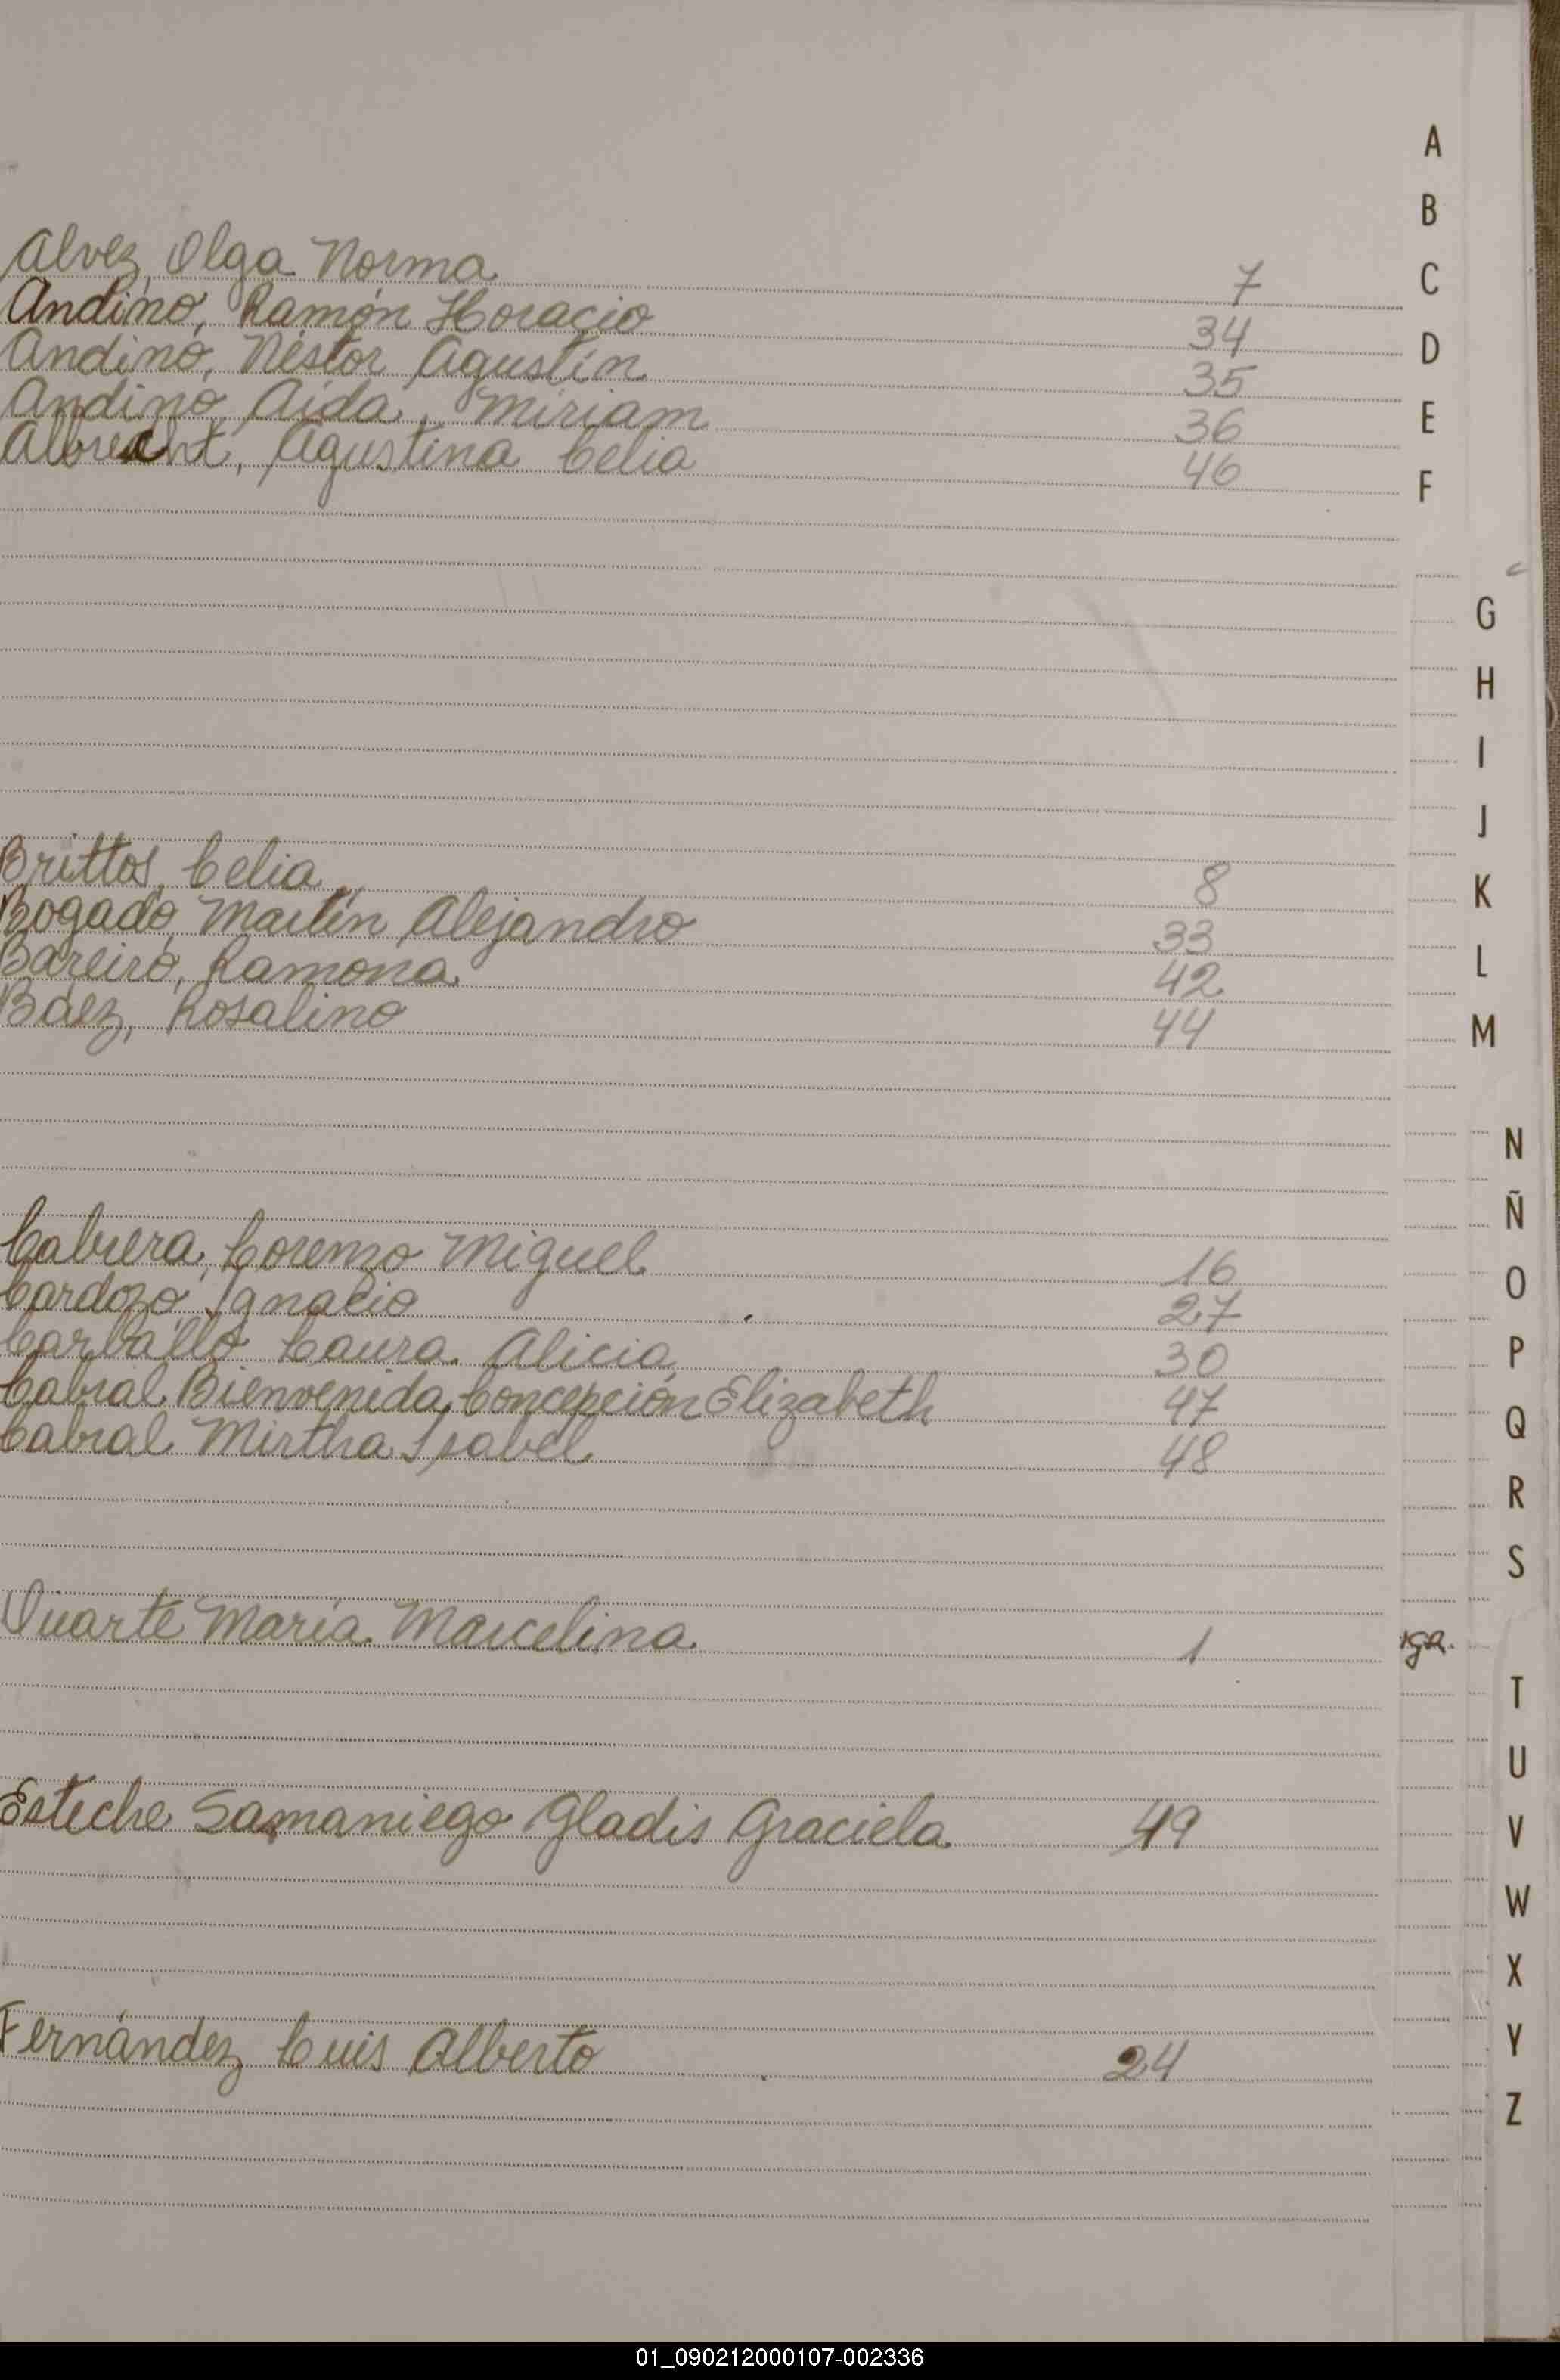 A
B
C
D
E
F
Alvez, Olga Norma 7
Andino, Ramón Horacio 34
Andino, Néstor Agustín 35
Andino, Aída, Miriam 36
Albrecht, Agustina Celia 46
G
H
I
J
K
L
M
Brittos, Celia 8
Bogado, Martín Alejandro 33
Bareiro, Ramona 42
Báez, Rosalino 44
N
Ñ
O
P
Q
R
S
Cabrera, Lorenzo Miguel 16
Cardozo, Ignacio 27
Carballo Laura Alicia 30
Cabral Bienvenida Concepción Elizabeth 47
Cabral Mirtha Isabel 48
Duarte María Marcelina 1
iga.
T
U
V
W
X
Y
Z
Esteche Samaniego Gladis Graciela 49
Fernández Luis Alberto 24
01_090212000107-002336